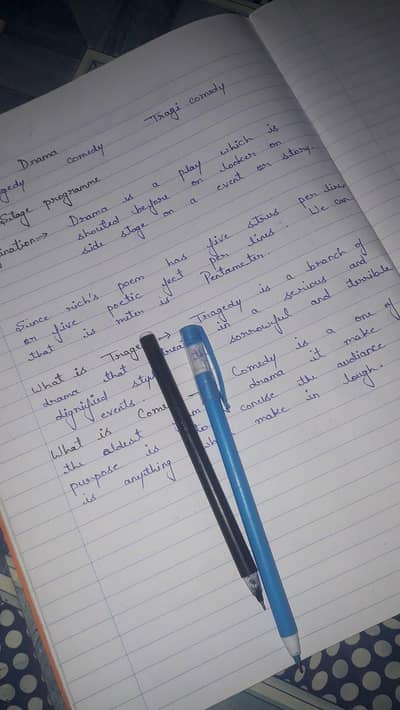 Drama
Tragi comedy
gedy comedy
Stage programme
ination⇒ Drama is a play which is
shouted before on looker on
side stage on a event or story.
Since rich's poem has five strus per line
or five poetic feet per lines. We can
that is miter is Pentameter.
What is Trage → Tragedy is a branch of
drama that in a serious and
dignified sorrowful and terrible
events.
What is Come Comedy is a one of
the oldest drama it make
purpose is concise the audiance
is anything make in lough.